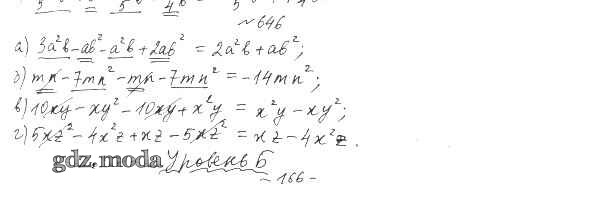 ~646
а) 3a²b-ab²-a²b+2ab² = 2a²b+ab²;
б) mn-7mn²-mn-7mn² = -14mn²;
в) 10xy-xy²-10xy+x²y = x²y-xy²;
г) 5xz²-4x²z+xz-5xz² = xz-4x²z.
gdz.moda Уровень Б
- 166 -